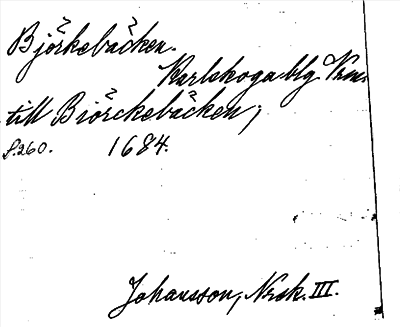 Björkebäcken.
Karlskoga blg Vrm.
till Biörckebäcken,
s.260. 1684.
Johansson, Nrsk. III.